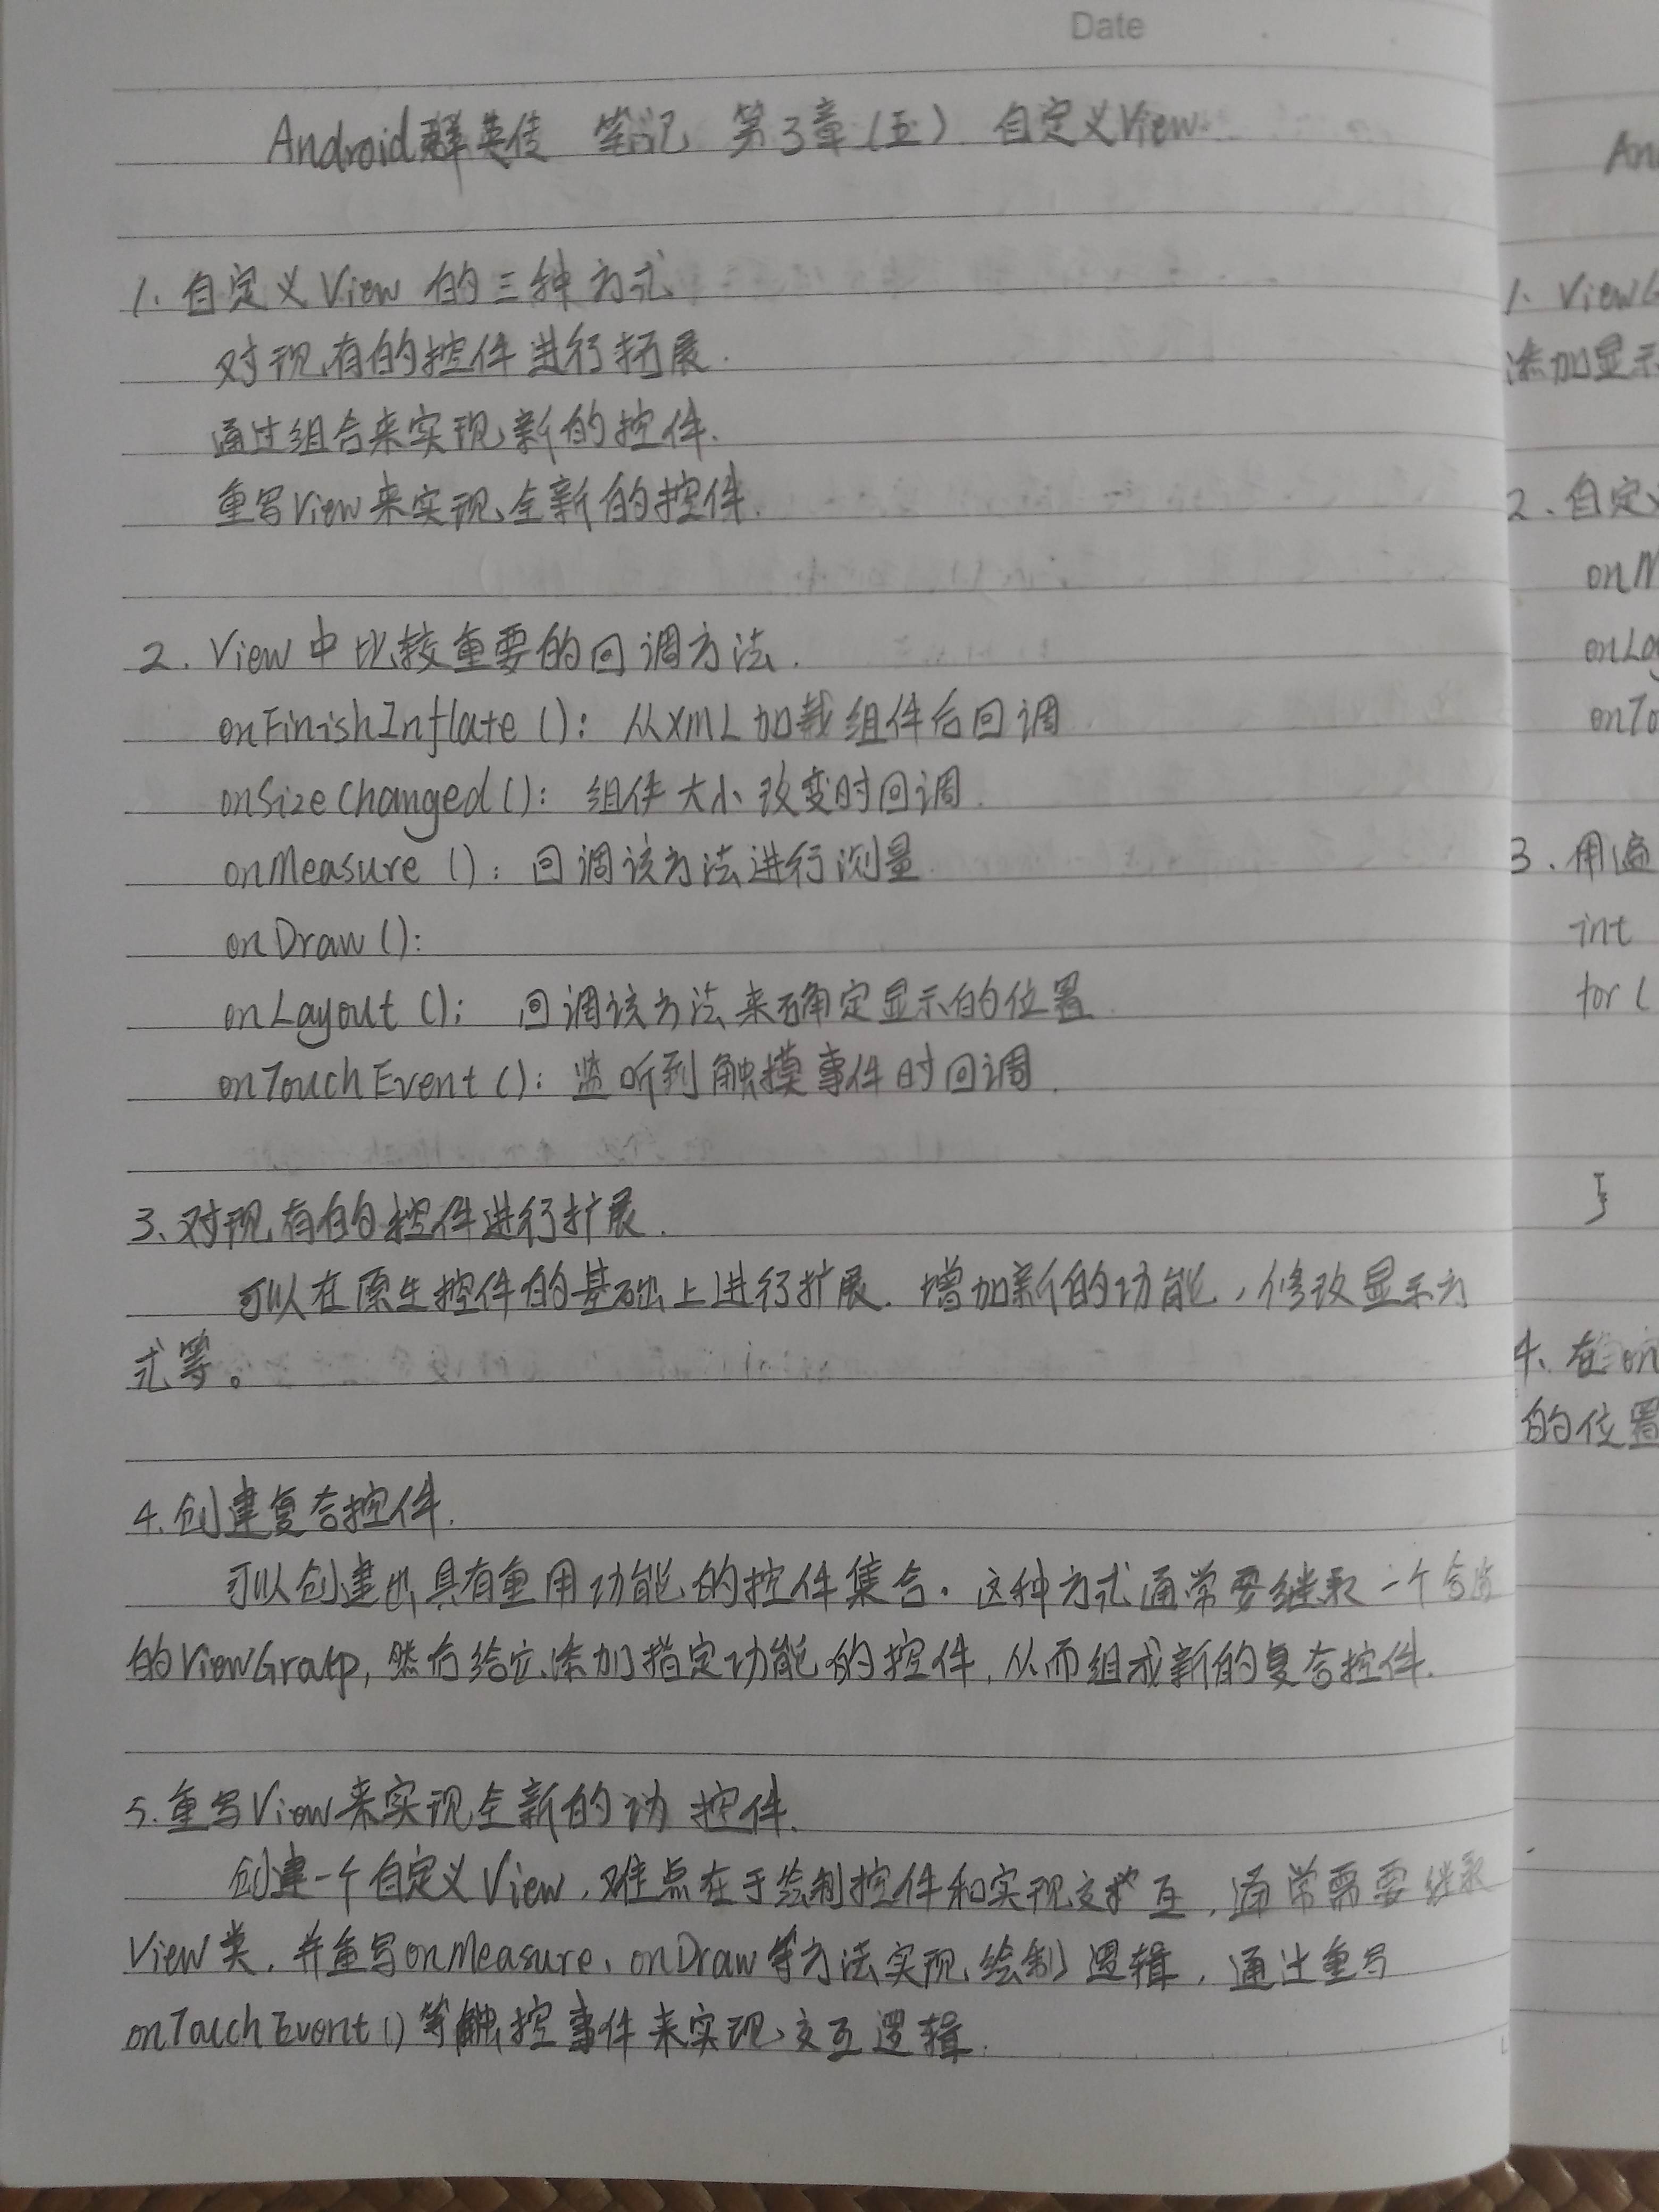 Date
Android群英传 笔记 第3章(五) 自定义View
1. 自定义View 的三种方式
对现有的控件进行拓展.
通过组合来实现新的控件.
重写View来实现全新的控件.
2. View中比较重要的回调方法.
onFinishInflate (): 从XML加载组件后回调
onSizeChanged (): 组件大小改变时回调.
onMeasure (): 回调该方法进行测量
onDraw ():
onLayout (): 回调该方法来确定显示的位置
onTouchEvent (): 监听到触摸事件时回调.
3、对现有的控件进行扩展.
可以在原生控件的基础上进行扩展. 增加新的功能, 修改显示方
式等。
4. 创建复合控件.
可以创建出具有重用功能的控件集合. 这种方式通常要继承一个合适
的ViewGroup, 然后给它添加指定功能的控件, 从而组成新的复合控件.
5. 重写View来实现全新的功 控件.
创建一个自定义View, 难点在于绘制控件和实现交互, 通常需要继承
View类, 并重写onMeasure、onDraw等方法实现绘制逻辑, 通过重写
onTouchEvent()等触控事件来实现交互逻辑.
1. View
添加显示
2、自定
onM
onLa
onTo
3、用遍
int
for (
}
4、在on
的位置